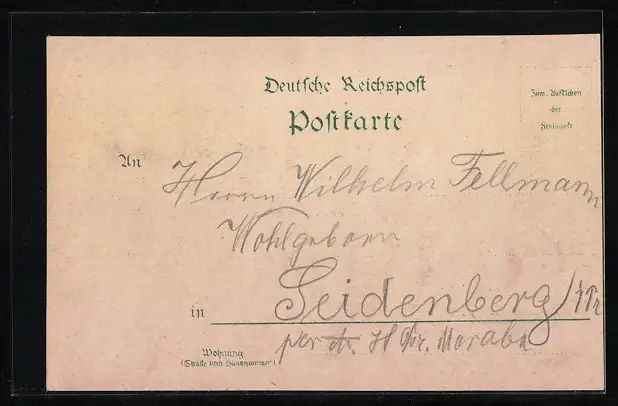 Deutsche Reichspost
Postkarte
Zum Aufkleben
der
Postmarke
An
Herrn Wilhelm Fellmann
Wohlgeboren
in Seidenberg
per
Wohnung
(Straße und Hausnummer)